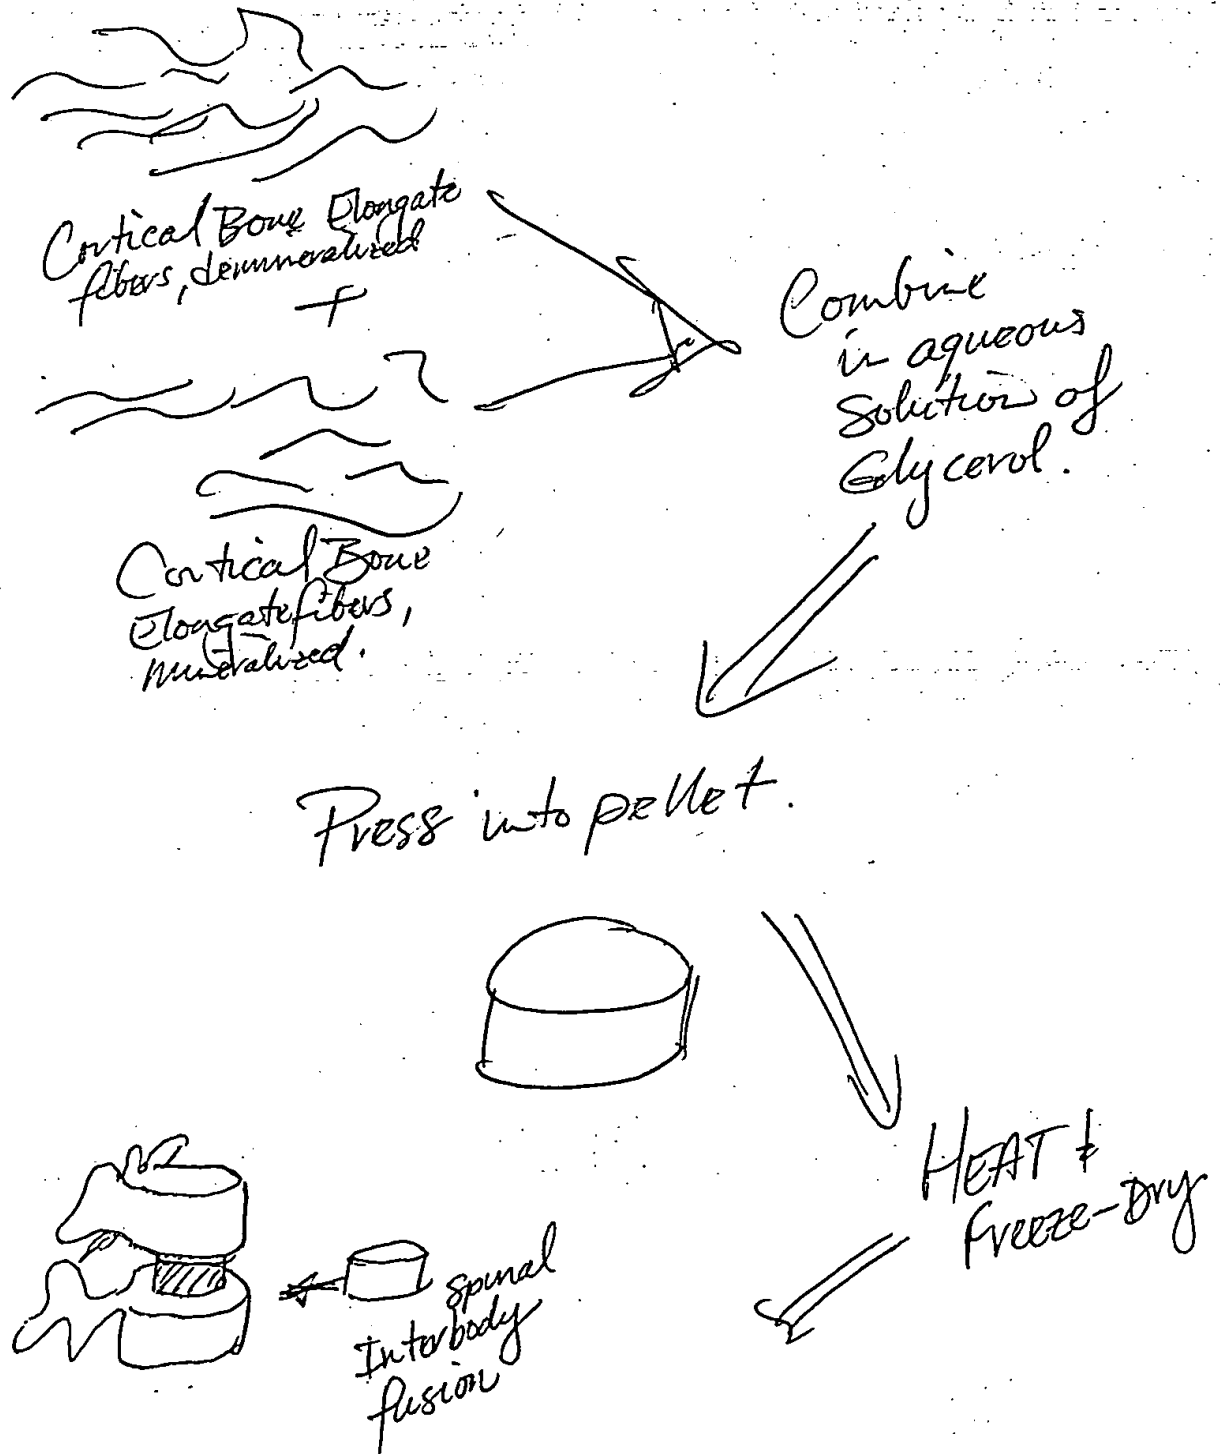 Cortical Bone Elongate
fibers, demineralized
+
Cortical Bone
Elongate fibers,
mineralized.
Combine
in aqueous
solution of
Glycerol.
Press into pellet.
HEAT &
freeze-Dry
spinal
Interbody
fusion